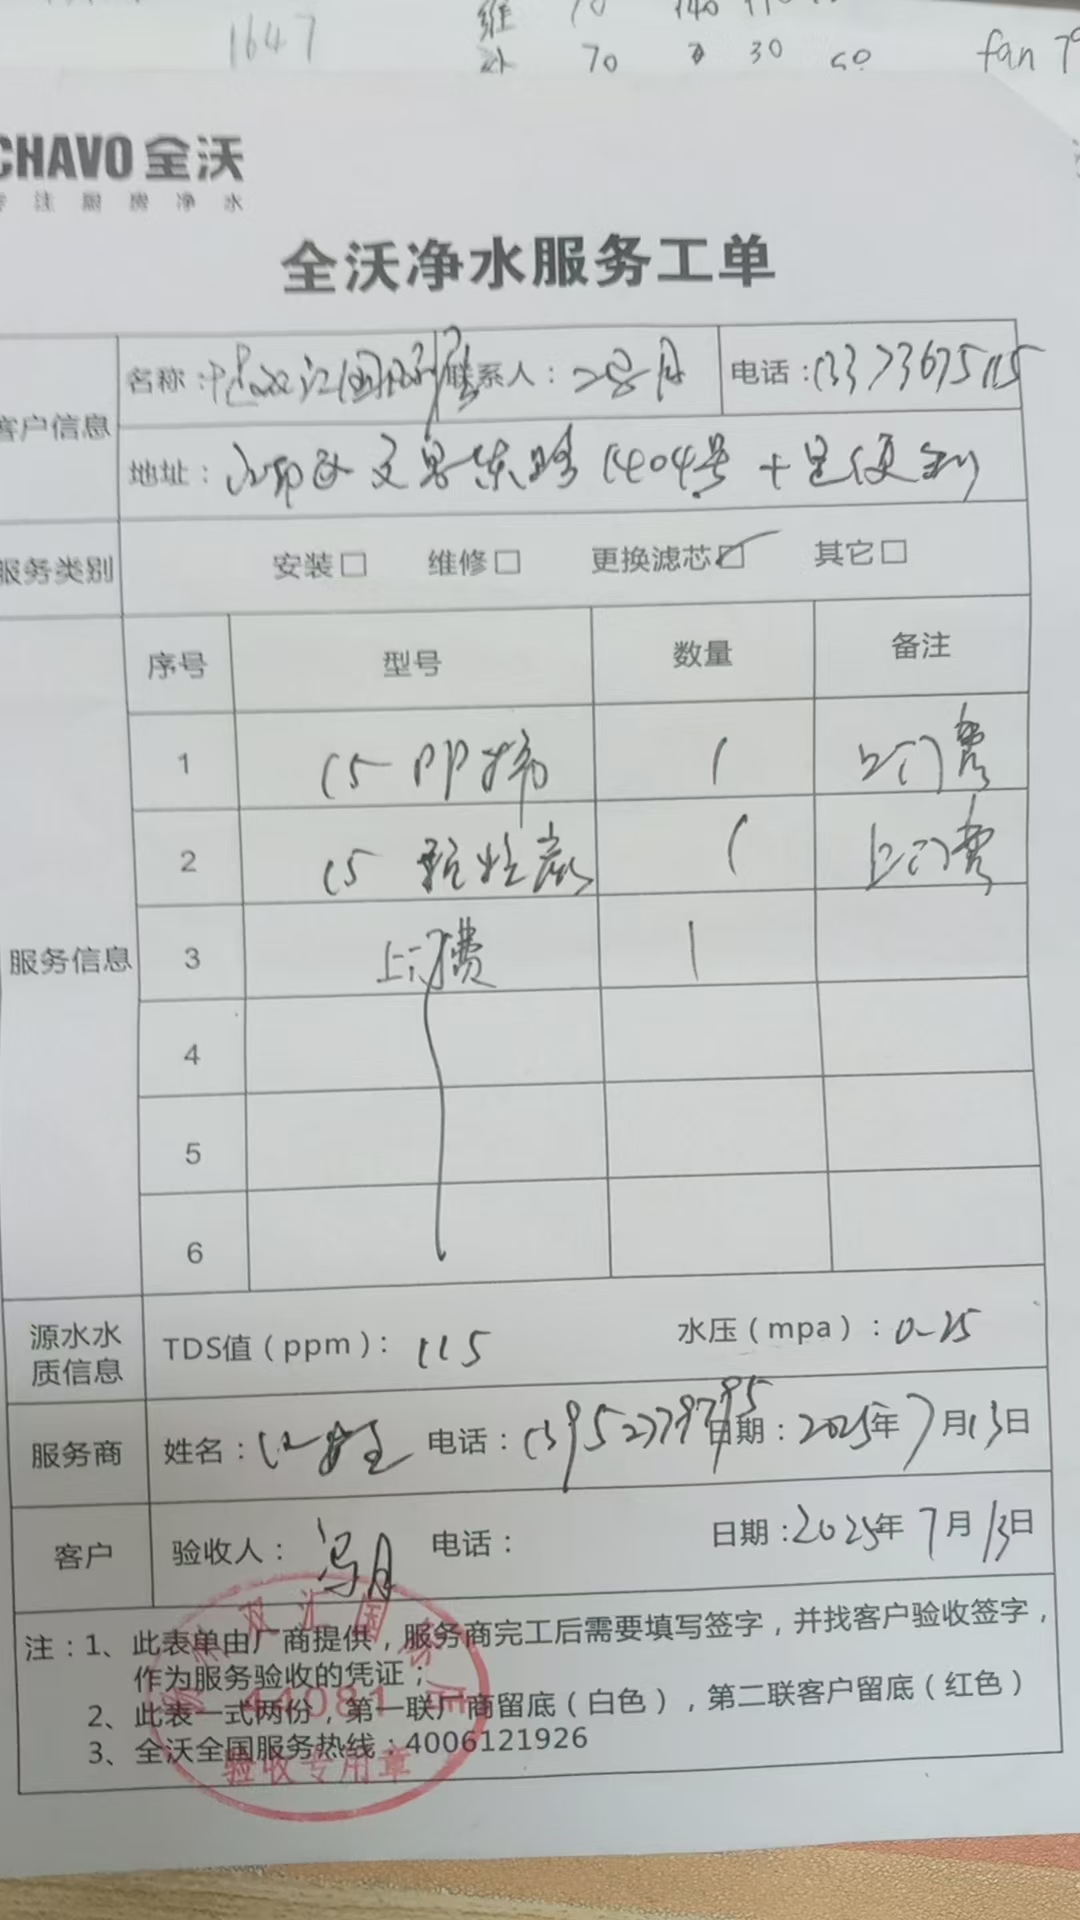 1647
70 140
70 30 60 fan
CHAVO 全沃
专注厨房净水
全沃净水服务工单
客户信息
名称： 联系人： 电话：13373675115
地址： 东路1404号
服务类别 安装□ 维修□ 更换滤芯☑ 其它□
服务信息
序号 型号 数量 备注
1 15 PP棉 1 上门费
2 15 活性炭 1 上门费
3 上门费 1
4
5
6
源水水质信息 TDS值（ppm）：115 水压（mpa）：0.25
服务商 姓名： 电话： 日期：2025年7月13日
客户 验收人：冯月 电话： 日期：2025年7月13日
注：1、此表单由厂商提供，服务商完工后需要填写签字，并找客户验收签字，
作为服务验收的凭证；
2、此表一式两份，第一联厂商留底（白色），第二联客户留底（红色）
3、全沃全国服务热线：4006121926
双汇国际
44081
验收专用章